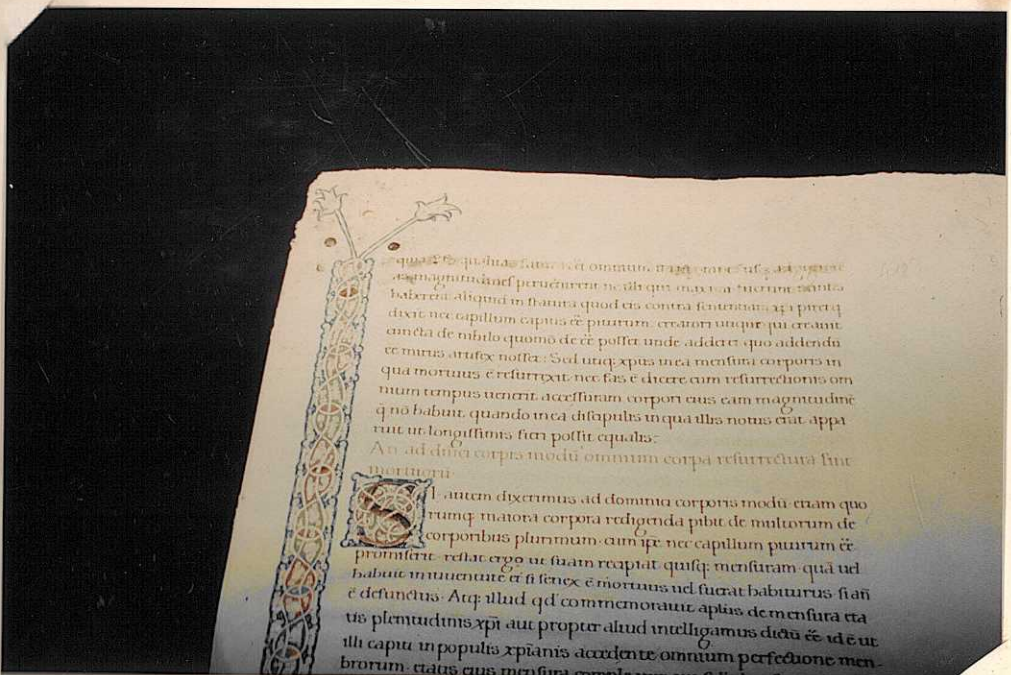 magnitudines peruenirent ne illi qui
haberent aliquid in statura quod eis contra sententiam xpi
dixit nec capillum capitis ee̅ piturum creatori utique qui creauit
cuncta de nihilo quomo̅ de ee̅ posset unde adderet quo addendu̅
et mirus artifex nosset: Sed utiq; xpus in ea mensura corporis in
qua mortuus e̅ resurrexit nec fas e̅ dicere cum resurrectionis om
nium tempus uenerit accessuram corpori eius eam magnitudine̅
q̅ no̅ habuit quando in ea discipulis in qua illis notus erat appa
ruit ut longissimis fieri possit equalis:
An ad dnici corpis modu̅ omnium corpa resurrectura sint
mortuoru̅
SI autem dixerimus ad dominici corporis modu̅ etiam quo
rumq; maiora corpora redigenda pibit de multorum de
corporibus plurimum cum ipe nec capillum piturum ee̅
promiserit restat ergo ut suam recipiat quisq; mensuram qua̅ uel
habuit in iuuentute et si senex e̅ mortuus uel fuerat habiturus si an̅
e̅ defunctus. Atq; illud qd commemorauit aplus de mensura eta
tis plenitudinis xpi aut propter aliud intelligamus dictu̅ ee̅ id e̅ ut
illi capiti in populis xpianis accedente omnium perfectione mem
brorum etatis eius mensura